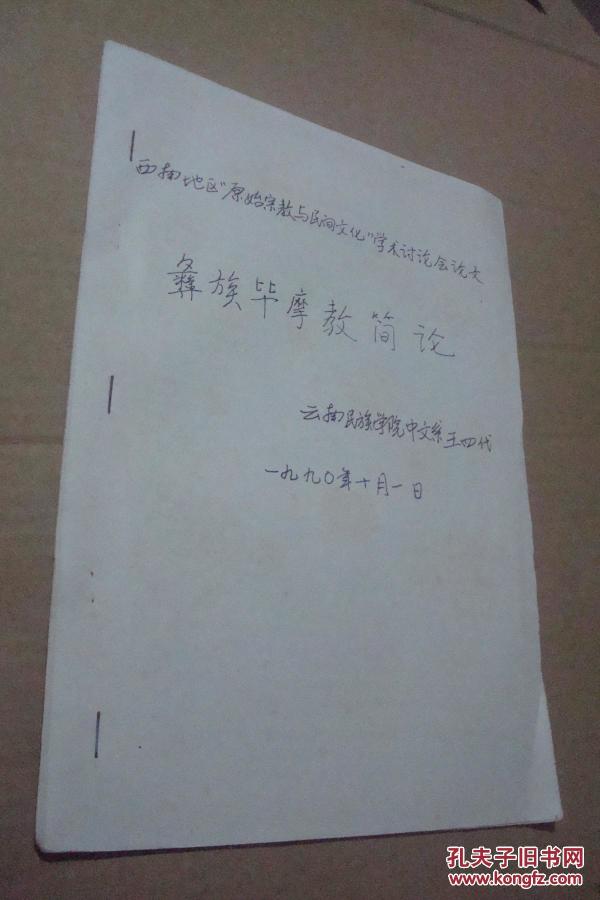 西南地区"原始宗教与民间文化"学术讨论会论文
彝族毕摩教简论
云南民族学院中文系王四代
一九九〇年十月一日
孔夫子旧书网
www.kongfz.com